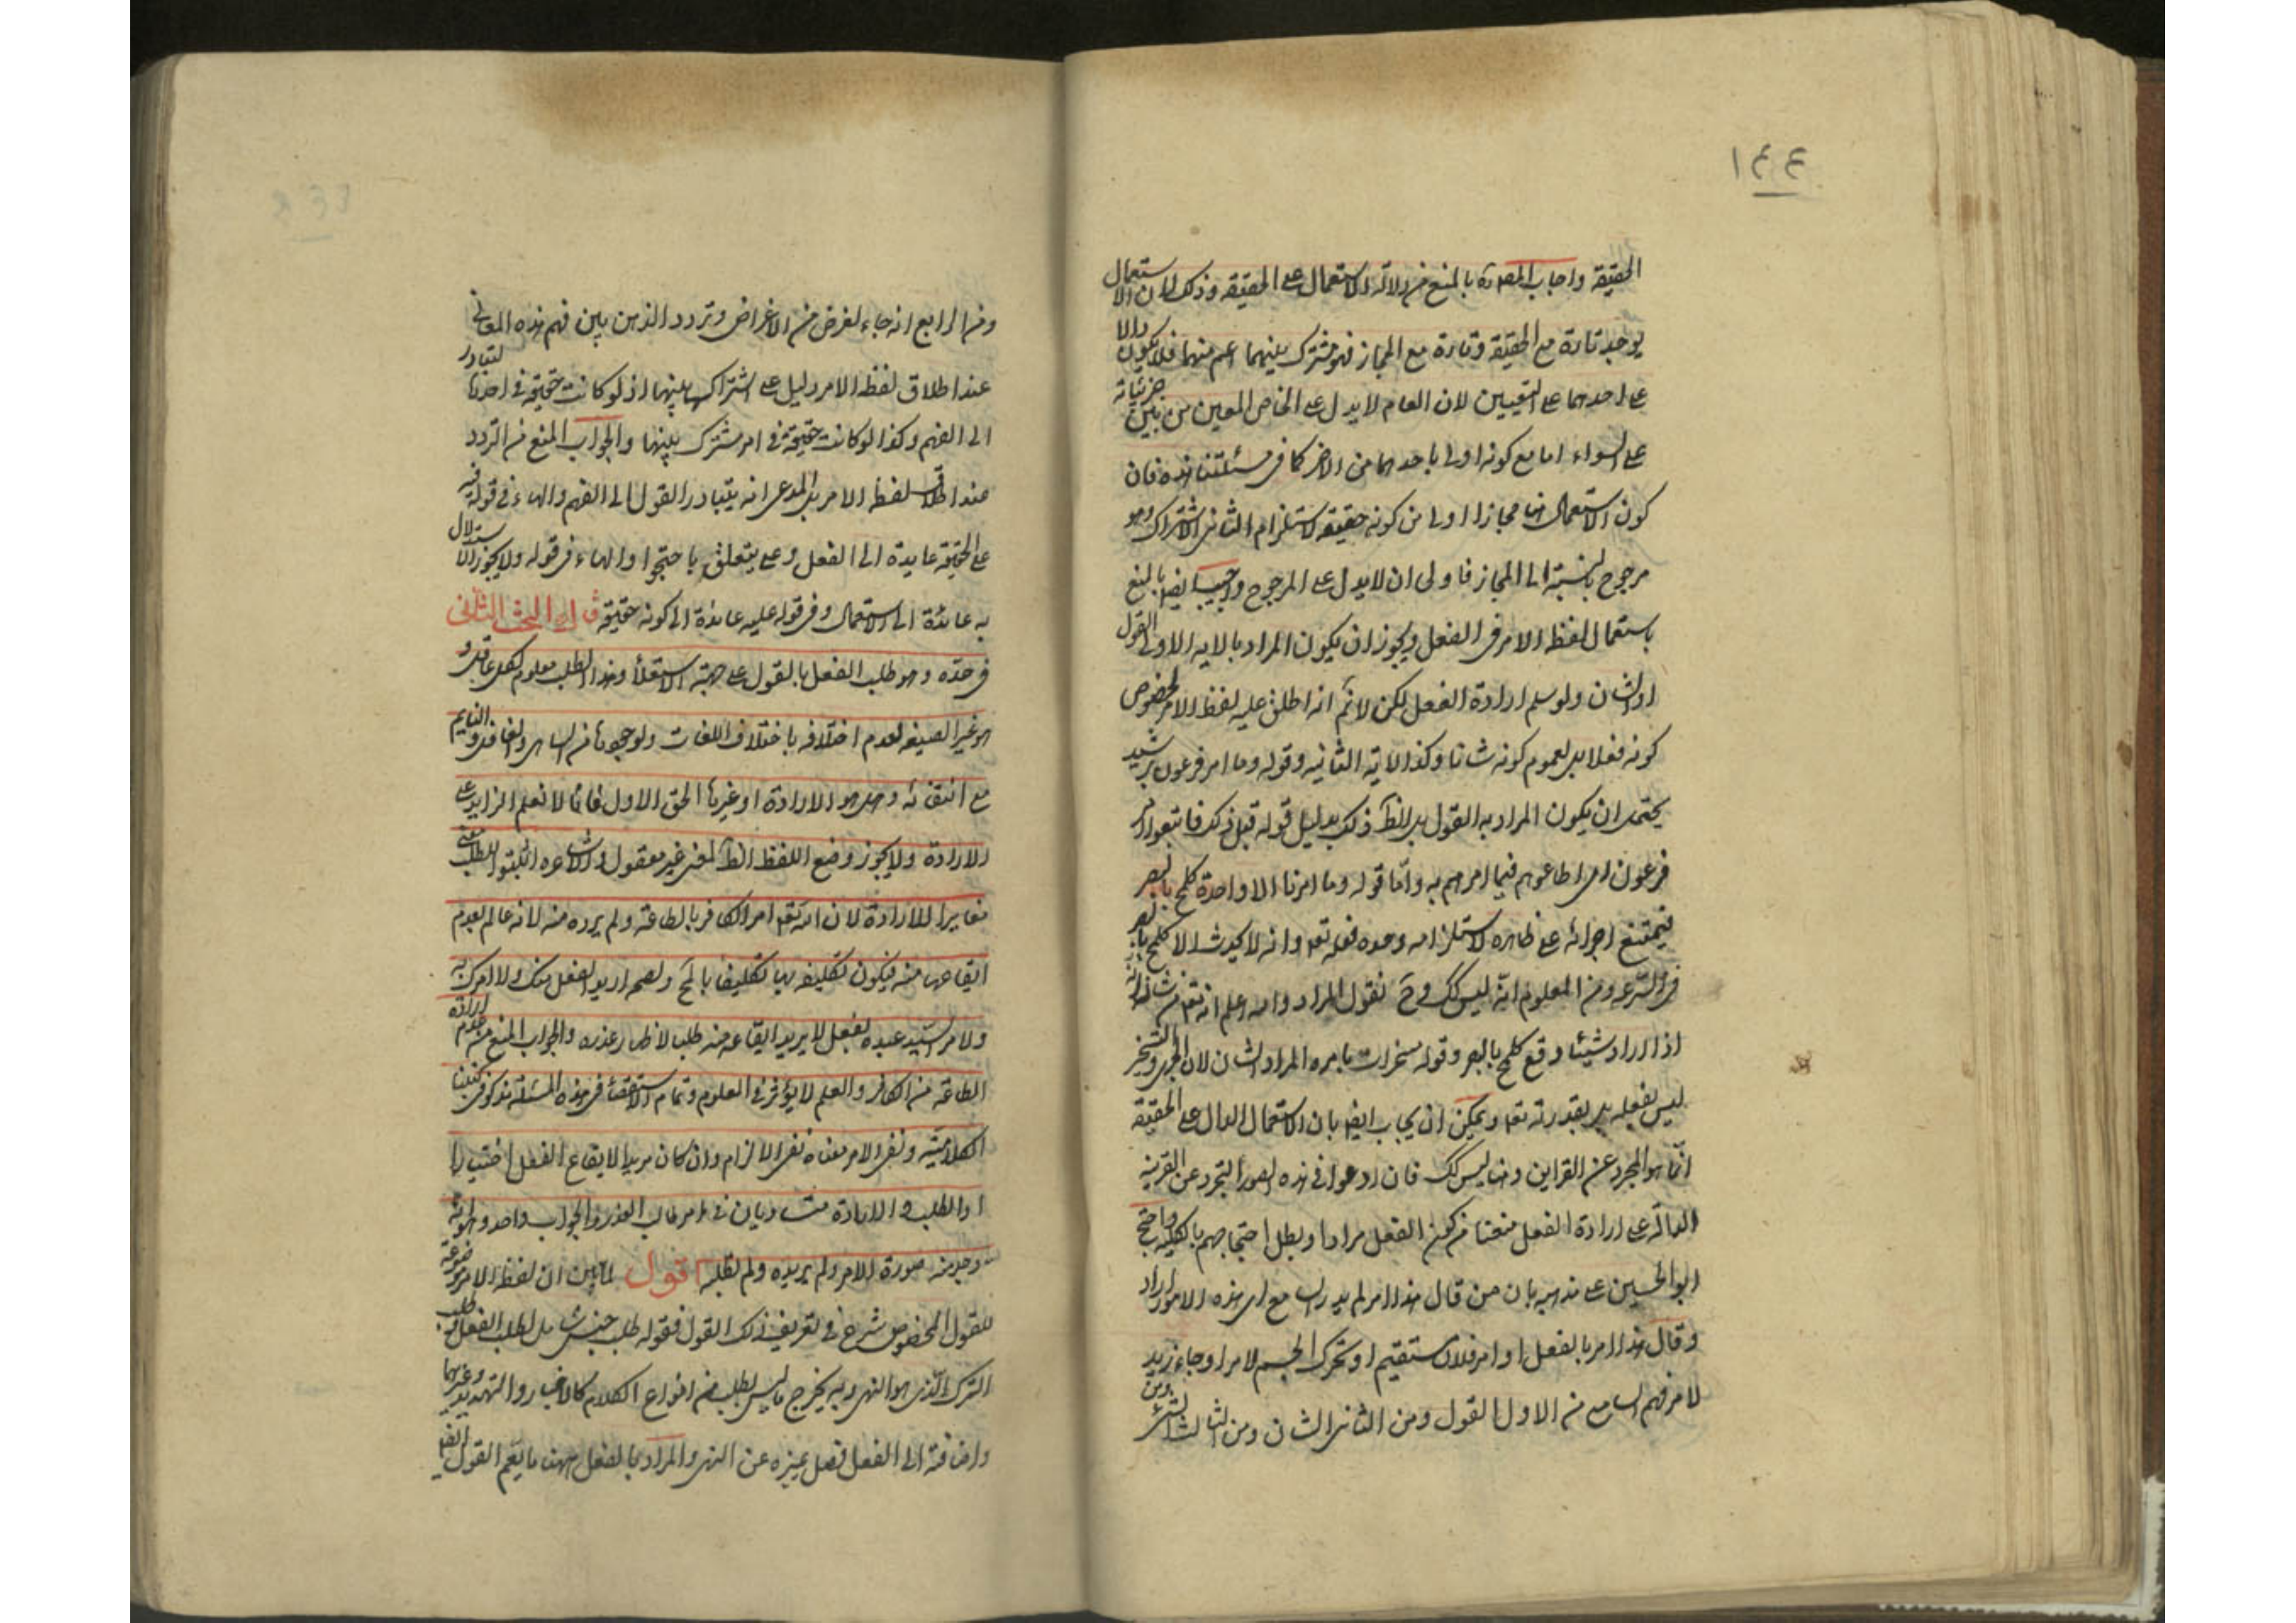 ١٤٤
الحقيقة واجاب المصـ ره بالمنع من دلالة الاستعمال على الحقيقة وذلك لان الاستعمال
يوجد تارة مع الحقيقة وتارة مع المجاز فهو مشترك بينهما اعم منهما فلا يكون دالا
على احدهما على التعيين لان العام لا يدل على الخاص المعين من بين جزئياته
على السواء اما مع كونه اولى باحدهما من الاخر كما فى مسئلتنا هذه فان
كون الاستعمال هنا مجازا اولى من كونه حقيقة لاستلزام الثانى الاشتراك وهو
مرجوح بالنسبة الى المجاز فاولى ان لا يدل على المرجوح واجيب ايضا بالمنع
باستعمال لفظ الامر فى الفعل ويجوز ان يكون المراد بالاية الاولى القول
او الشان ولو سلم ارادة الفعل لكن لانم انه اطلق عليه لفظ الامر لخصوص
كونه فعلا بل لعموم كونه شانا وكذا الاية الثانية وقوله وما امر فرعون برشيد
يحتمل ان يكون المراد به القول بل الظ ذلك بدليل قوله قبل ذلك فاتبعوا امر
فرعون اى اطاعوهم فيما امرهم به واما قوله وما امرنا الا واحدة كلمح بالبصر
فيمتنع اجرائه على ظاهره لاستلزامه وحدة فعله تعا وانه لا يحدث الا كلمح بالبصر
فى السرعة ومن المعلوم انه ليس كك وح نقول المراد والله اعلم انه تعا من شانه انه
اذا اراد شيئا وقع كلمح بالبصر وقوله مسخرات بامره المراد الشان لان الجرى والتسخير
ليس بفعله بل بقدرته تعا ويمكن ان يجاب ايضا بان الاستعمال الدال على الحقيقة
انما هو المجرد عن القراين وهنا ليس كك فان ادعوا فى هذه الصور التجرد عن القرينة
الدالة على ارادة الفعل منعنا من كون الفعل مرادا وبطل احتجاجهم بالكلية واحتج
ابو الحسين على مذهبه بان من قال هذا امر لم يدر السامع اى هذه الامور اراد
وقال هذا امر بالفعل او امر فلان مستقيم او تحرك الجسم لامر او جاء زيد
لامر فهم السامع من الاول القول ومن الثانى الشان ومن الثالث الشئ ومن
ومن الرابع انه جاء لغرض من الاغراض وتردد الذهن بين فهم هذه المعانى
عند اطلاق لفظ الامر دليل على اشتراكها بينها اذ لو كانت حقيقة فى احدها لتبادر
الى الفهم وكذا لو كانت حقيقة فى امر مشترك بينها والجواب المنع من التردد
عند اطلاق لفظ الامر بل المدعى انه يتبادر القول الى الفهم والهاء فى قوله فيه
على الحقيقة عايدة الى الفعل وعلى يتعلق باحتجوا والهاء فى قوله ولا يجوز الاستدلال
به عائدة الى الاستعمال وفى قوله عليه عائدة الى كونه حقيقة قال البحث الثانى
فى حده وهو طلب الفعل بالقول على جهة الاستعلا وهذا الطلب معلوم لكل عاقل و
هو غير الصيغة لعدم اختلافه باختلاف اللغات ولوجودها من الساهى والغافل والنايم
مع انتفائه وهل هو الارادة او غيرها الحق الاول فانا لا نعلم الزايد على
الارادة ولا يجوز وضع اللفظ الظ لمعنى غير معقول والاشاعره اثبتوا للطلب معنى
مغايرا للارادة لان الله تعا امر الكافر بالطاعة ولم يرده منه لانه عالم بعدم
ايقاعها منه فيكون تكليفه بها تكليفا بالمح ولصحه اريد الفعل منك ولا امرك به
ولامر السيد عبده بفعل لا يريد ايقاعه منه طلبا لاظهار عذره والجواب المنع من عدم ارادة
الطاعة من الكافر والعلم لا يؤثر فى المعلوم وتمام الاستقصا فى هذه المسئلة مذكور فى كتبنا
الكلامية ونفى الامر معناه نفى الالزام وان كان مريدا لايقاع الفعل اختيارا
او الطلب والارادة متساويان فى امر طالب العذر والجواب واحد وهو انه
وجد منه صورة الامر ولم يريده ولم يطلبه اقول لما بين ان لفظ الامر موضوعة
للقول المخصوص شرع فى تعريف ذلك القول فقوله طلب جنس شامل لطلب الفعل وطلب
الترك الذى هو النهى وبه يخرج ما ليس بطلب من انواع الكلام كالاخبار والتهديد وغيرهما
واضافته الى الفعل فصل يميزه عن النهى والمراد بالفعل ههنا ما يعم القول ايضا